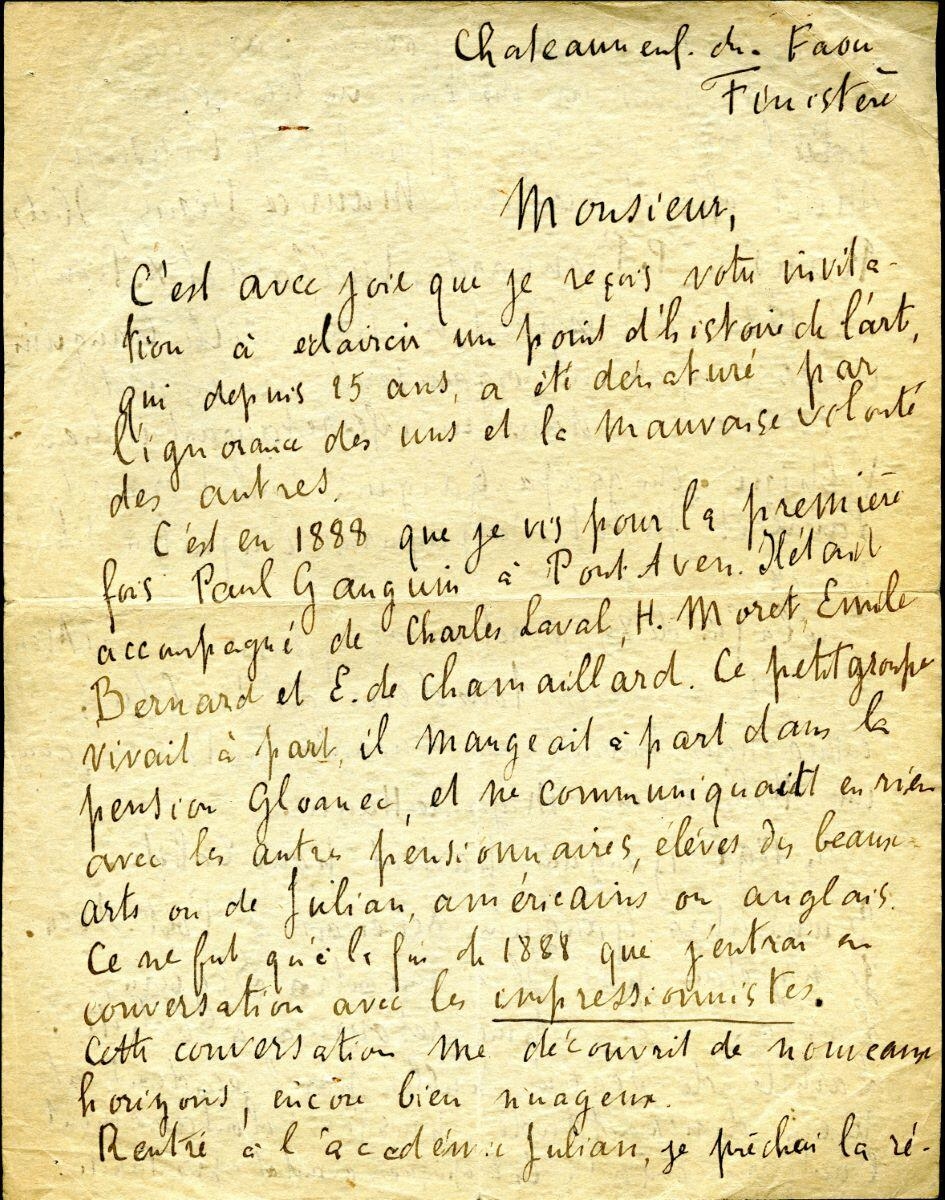 Chateauneuf. du. Faou
Finistère
Monsieur,
C'est avec joie que je reçois votre invita-
tion à eclaircir un point d'histoire de l'art,
qui depuis 25 ans, a été dénaturé par
l'ignorance des uns et la mauvaise volonté
des autres.
C'est en 1888 que je vis pour la première
fois Paul Gauguin à Pont Aven. Il était
accompagné de Charles Laval, H. Moret, Emile
Bernard et E. de Chamaillard. Ce petit groupe
vivait à part, il mangeait à part dans la
pension Gloanec, et ne communiquait en rien
avec les autres pensionnaires, élèves des beaux-
arts ou de Julian, américains ou anglais.
Ce ne fut qu'à la fin de 1888 que j'entrai en
conversation avec les impressionnistes.
Cette conversation me découvrit de nouveaux
horizons, encore bien nuageux.
Rentré à l'académie Julian, je prêchai la ré-